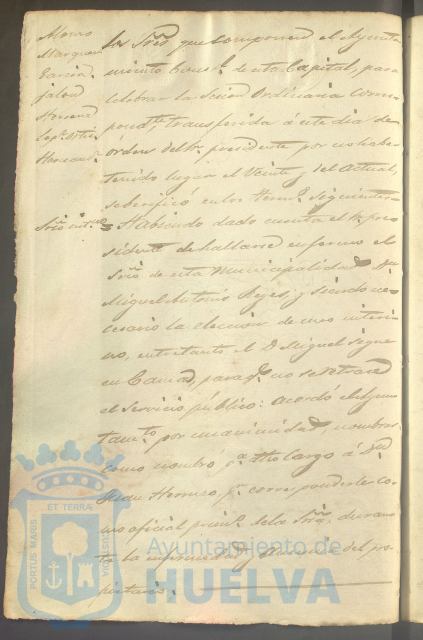 Alonso
Marquez
Garcia
Jalon
los Sres. que componen el Ayunta-
miento Const.l de esta Capital, para
celebrar la Sesion Ordinaria corres-
pond.te, transferida á este dia de
órden del Sr. presidente por no haber
tenido lugar el Veinte y del actual,
se verificó en los term.s siguientes=
Habiendo dado cuenta el Sr. pre-
sidente de hallarse enfermo el
Srio. de esta Municipalidad Dn.
Miguel Antonio Reyes, y siendo ne-
cesario la eleccion de uno interi-
no, entretanto el D. Miguel sigue
en Cama, para q.e no se retrase
el servicio público: acordó el Ayun-
tam.to por unanimidad nombrar
como nombró p.a dho cargo á Dn.
Juan p.r corresponderle co-
mo oficial prim.o de la Sria, duran-
te la enfermedad y Ausencia del pro-
pietario.
PORTUS MARIS ET TERRÆ CUSTODIA
Ayuntamiento de
HUELVA